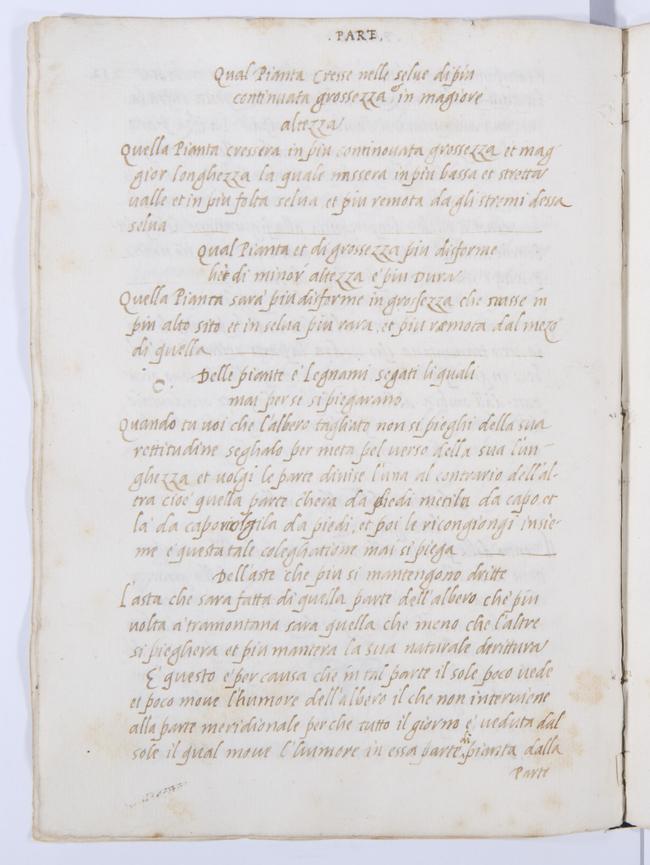 . PARTE.
Qual Pianta cresse nelle selve di più
continuata grossezza et in magiore
altezza
Quella Pianta cressera in più continovata grossezza et mag
gior longhezza la quale nassera in più bassa et stretta
valle et in più folta selva et più remota da gli stremi dessa
selva
Qual Pianta et di grossezza più disforme
et di minor altezza e più dura
Quella Pianta sarà più disforme in grossezza che nasse in
più alto sito et in selva più rara, et più remota dal mezo
di quella
Delle piante e Legnami segati li quali
mai per se si piegarano
Quando tu voi che l'albero tagliato non si pieghi della sua
rettitudine seghalo per meta pel verso della sua lun-
ghezza et volgi le parte divise l'una al contrario dell'al-
tra cioè quella parte ch'era da piedi metila da capo et
la da capo volgila da piedi, et poi le ricongiongi insie-
me e questa tale coleghatione mai si piega
Dell'aste che più si mantengono dritte
L'asta che sara fatta di quella parte dell'albero che più
volta a tramontana sara quella che meno che l'altre
si pieghera et più mantera la sua naturale derittura
E questo è per causa che in tal parte il sole poco vede
et poco move l'humore dell'albero il che non interviene
alla parte meridionale perche tutto il giorno è veduta dal
sole il qual move l'humore in essa parte di pianta dalla
Parte